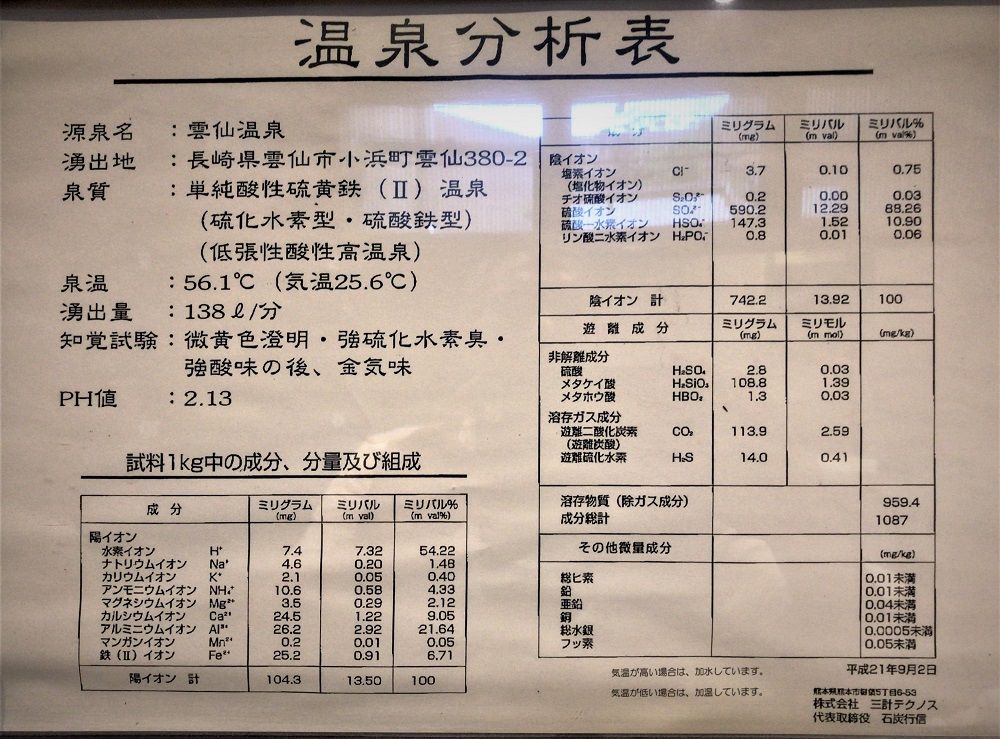 温泉分析表
源泉名 :雲仙温泉
湧出地 :長崎県雲仙市小浜町雲仙380-2
泉質 :単純酸性硫黄鉄(Ⅱ)温泉
(硫化水素型・硫酸鉄型)
(低張性酸性高温泉)
泉温 :56.1℃(気温25.6℃)
湧出量 :138ℓ/分
知覚試験:微黄色澄明・強硫化水素臭・
強酸味の後、金気味
PH値 :2.13
試料1kg中の成分、分量及び組成
成分 ミリグラム(mg) ミリバル(m val) ミリバル%(m val%)
陽イオン
水素イオン H⁺ 7.4 7.32 54.22
ナトリウムイオン Na⁺ 4.6 0.20 1.48
カリウムイオン K⁺ 2.1 0.05 0.40
アンモニウムイオン NH₄⁺ 10.6 0.58 4.33
マグネシウムイオン Mg²⁺ 3.5 0.29 2.12
カルシウムイオン Ca²⁺ 24.5 1.22 9.05
アルミニウムイオン Al³⁺ 26.2 2.92 21.64
マンガンイオン Mn²⁺ 0.2 0.01 0.05
鉄(Ⅱ)イオン Fe²⁺ 25.2 0.91 6.71
陽イオン 計 104.3 13.50 100
成分 ミリグラム(mg) ミリバル(m val) ミリバル%(m val%)
陰イオン
塩素イオン Cl⁻ 3.7 0.10 0.75
(塩化物イオン)
チオ硫酸イオン S₂O₃²⁻ 0.2 0.00 0.03
硫酸イオン SO₄²⁻ 590.2 12.29 88.26
硫酸一水素イオン HSO₄⁻ 147.3 1.52 10.90
リン酸二水素イオン H₂PO₄⁻ 0.8 0.01 0.06
陰イオン 計 742.2 13.92 100
遊離成分 ミリグラム(mg) ミリモル(m mol) (mg/kg)
非解離成分
硫酸 H₂SO₄ 2.8 0.03
メタケイ酸 H₂SiO₃ 108.8 1.39
メタホウ酸 HBO₂ 1.3 0.03
溶存ガス成分
遊離二酸化炭素 CO₂ 113.9 2.59
(遊離炭酸)
遊離硫化水素 H₂S 14.0 0.41
溶存物質(除ガス成分) 959.4
成分総計 1087
その他微量成分 (mg/kg)
総ヒ素 0.01未満
鉛 0.01未満
亜鉛 0.04未満
銅 0.01未満
総水銀 0.0005未満
フッ素 0.05未満
気温が高い場合は、加水しています。
気温が低い場合は、加温しています。
平成21年9月2日
熊本県熊本市御領5丁目6-53
株式会社 三計テクノス
代表取締役 石炭行信